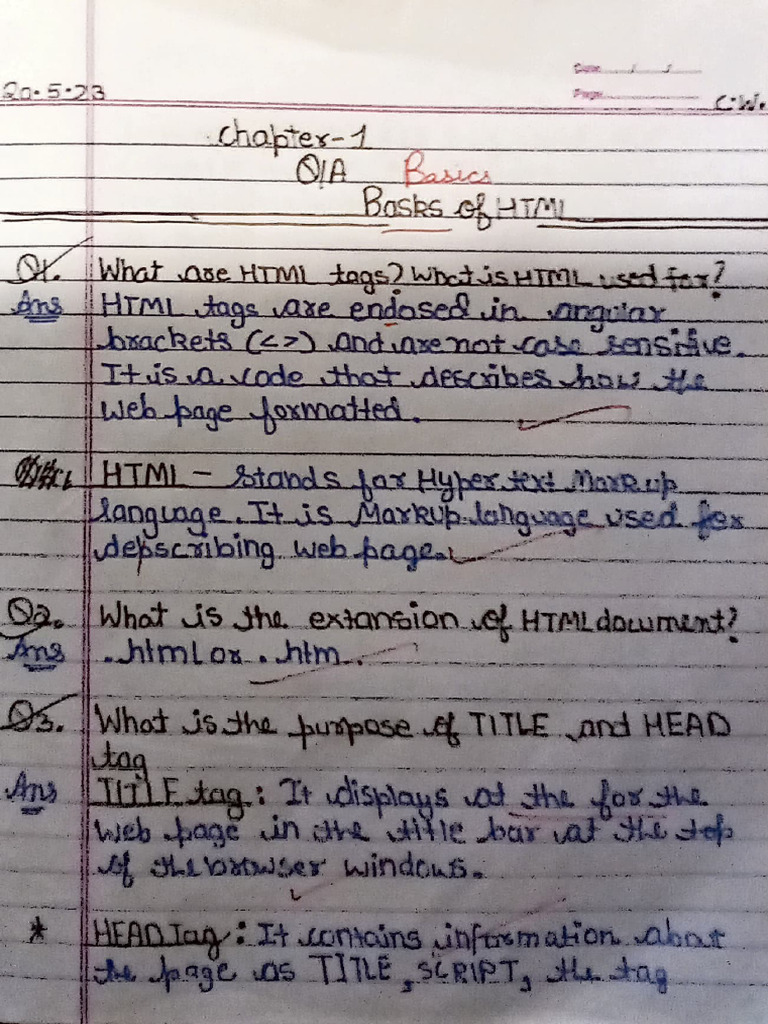 Date / /
20.5.23
Page
C.W.
Chapter-1
Q/A Basics
Basks of HTML
Q1. What are HTML tags? What is HTML used for?
Ans HTML tags are enclosed in angular
brackets (<>) and are not case sensitive.
It is a code that describes how the
web page formatted.
HTML - Stands for Hyper text Markup
language. It is Markup language used for
depscribing web page.
Q2. What is the extansion of HTML document?
Ans .html or .htm.
Q3. What is the purpose of TITLE and HEAD
tag
Ans TITLE tag: It displays at the for the
web page in the title bar at the top
of the browser windows.
* HEAD Tag: It contains information about
the page as TITLE, SCRIPT, the tag